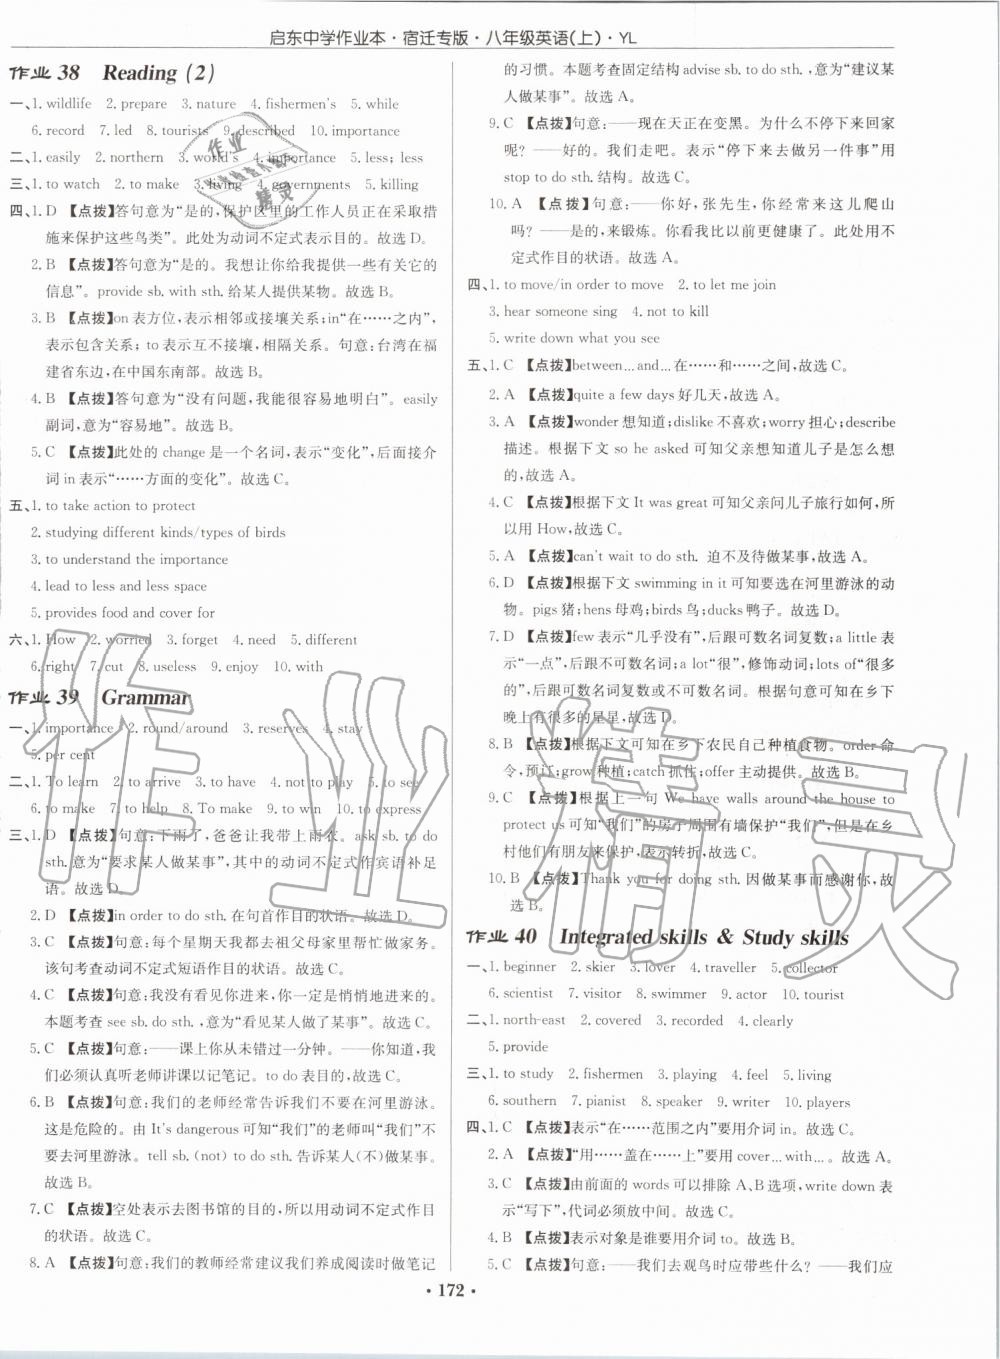 启东中学作业本·宿迁专版·八年级英语(上)·YL
作业 38 Reading (2)
一、1. wildlife 2. prepare 3. nature 4. fishermen's 5. while
6. record 7. led 8. tourists 9. described 10. importance
二、1. easily 2. northern 3. world's 4. importance 5. less; less
三、1. to watch 2. to make 3. living 4. governments 5. killing
四、1. D 【点拨】答句意为“是的,保护区里的工作人员正在采取措
施来保护这些鸟类”。此处为动词不定式表示目的。故选 D。
2. B 【点拨】答句意为“是的。我想让你给我提供一些有关它的
信息”。provide sb. with sth. 给某人提供某物。故选 B。
3. B 【点拨】on 表方位,表示相邻或接壤关系;in“在……之内”,
表示包含关系;to 表示互不接壤,相隔关系。句意:台湾在福
建省东边,在中国东南部。故选 B。
4. B 【点拨】答句意为“没有问题,我能很容易地明白”。easily
副词,意为“容易地”。故选 B。
5. C 【点拨】此处的 change 是一个名词,表示“变化”,后面接介
词 in 表示“……方面的变化”。故选 C。
五、1. to take action to protect
2. studying different kinds/types of birds
3. to understand the importance
4. lead to less and less space
5. provides food and cover for
六、1. How 2. worried 3. forget 4. need 5. different
6. right 7. cut 8. useless 9. enjoy 10. with
作业 39 Grammar
一、1. importance 2. round/around 3. reserves 4. stay
5. per cent
二、1. To learn 2. to arrive 3. to have 4. not to play 5. to see
6. to make 7. to help 8. To make 9. to win 10. to express
三、1. D 【点拨】句意:下雨了,爸爸让我带上雨衣。ask sb. to do
sth. 意为“要求某人做某事”,其中的动词不定式作宾语补足
语。故选 D。
2. D 【点拨】in order to do sth. 在句首作目的状语。故选 D。
3. C 【点拨】句意:每个星期天我都去祖父母家里帮忙做家务。
该句考查动词不定式短语作目的状语。故选 C。
4. C 【点拨】句意:我没有看见你进来,你一定是悄悄地进来的。
本题考查 see sb. do sth. ,意为“看见某人做了某事”。故选 C。
5. C 【点拨】句意:——课上你从未错过一分钟。——你知道,我
们必须认真听老师讲课以记笔记。to do 表目的。故选 C。
6. B 【点拨】句意:我们的老师经常告诉我们不要在河里游泳。
这是危险的。由 It's dangerous 可知“我们”的老师叫“我们”不
要去河里游泳。tell sb. (not) to do sth. 告诉某人(不)做某事。
故选 B。
7. C 【点拨】空处表示去图书馆的目的,所以用动词不定式作目
的状语。故选 C。
8. A 【点拨】句意:我们的教师经常建议我们养成阅读时做笔记
的习惯。本题考查固定结构 advise sb. to do sth. ,意为“建议某
人做某事”。故选 A。
9. C 【点拨】句意:——现在天正在变黑。为什么不停下来回家
呢? ——好的。我们走吧。表示“停下来去做另一件事”用
stop to do sth. 结构。故选 C。
10. A 【点拨】句意:——你好,张先生,你经常来这儿爬山
吗? ——是的,来锻炼。你看我比以前更健康了。此处用不
定式作目的状语。故选 A。
四、1. to move/in order to move 2. to let me join
3. hear someone sing 4. not to kill
5. write down what you see
五、1. C 【点拨】between...and...在……和……之间,故选 C。
2. A 【点拨】quite a few days 好几天,故选 A。
3. A 【点拨】wonder 想知道;dislike 不喜欢;worry 担心;describe
描述。根据下文 so he asked 可知父亲想知道儿子是怎么想
的,故选 A。
4. C 【点拨】根据下文 It was great 可知父亲问儿子旅行如何,所
以用 How,故选 C。
5. A 【点拨】can't wait to do sth. 迫不及待做某事,故选 A。
6. D 【点拨】根据下文 swimming in it 可知要选在河里游泳的动
物。pigs 猪;hens 母鸡;birds 鸟;ducks 鸭子。故选 D。
7. D 【点拨】few 表示“几乎没有”,后跟可数名词复数;a little 表
示“一点”,后跟不可数名词;a lot“很”,修饰动词;lots of“很多
的”,后跟可数名词复数或不可数名词。根据句意可知在乡下
晚上有很多的星星,故选 D。
8. B 【点拨】根据下文可知在乡下农民自己种植食物。order 命
令,预订;grow 种植;catch 抓住;offer 主动提供。故选 B。
9. C 【点拨】根据上一句 We have walls around the house to
protect us 可知“我们”的房子周围有墙保护“我们”,但是在乡
村他们有朋友来保护,表示转折,故选 C。
10. B 【点拨】Thank you for doing sth. 因做某事而感谢你,故
选 B。
作业 40 Integrated skills & Study skills
一、1. beginner 2. skier 3. lover 4. traveller 5. collector
6. scientist 7. visitor 8. swimmer 9. actor 10. tourist
二、1. north-east 2. covered 3. recorded 4. clearly
5. provide
三、1. to study 2. fishermen 3. playing 4. feel 5. living
6. southern 7. pianist 8. speaker 9. writer 10. players
四、1. C 【点拨】表示“在……范围之内”要用介词 in。故选 C。
2. A 【点拨】“用……盖在……上”要用 cover...with...。故选 A。
3. C 【点拨】由前面的 words 可以排除 A、B 选项,write down 表
示“写下”,代词必须放中间。故选 C。
4. B 【点拨】表示对象是谁要用介词 to。故选 B。
5. C 【点拨】句意:——我们去观鸟时应带些什么? ——我们应
· 172 ·
作业
精灵
作业精灵